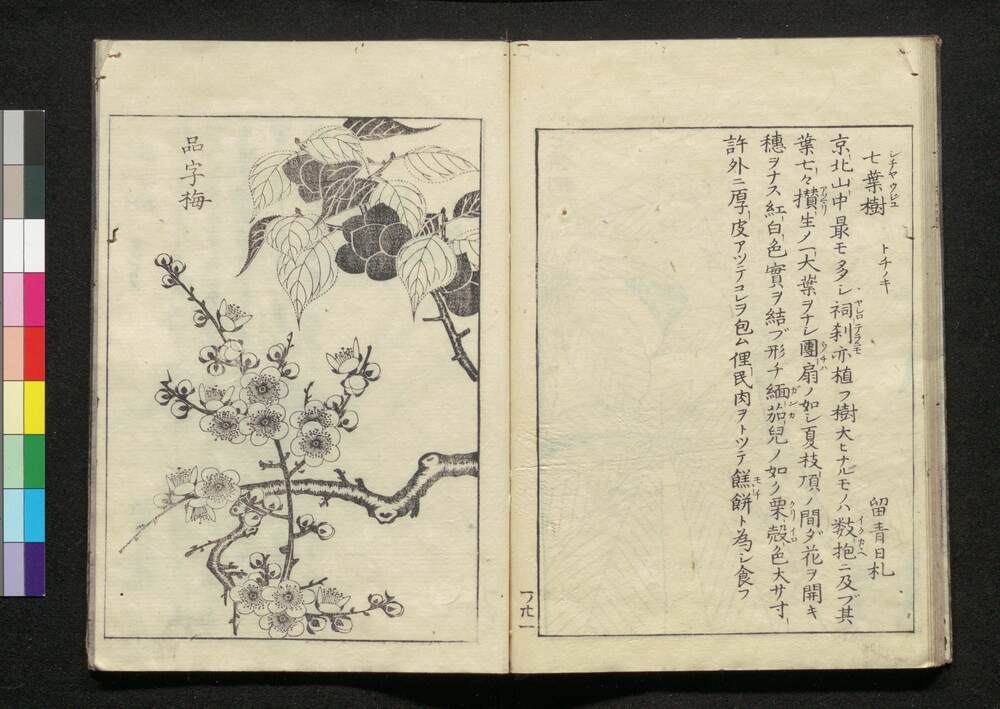 七葉樹 シチヤウジユ トチノキ 留青日札
京北山中最モ多シ祠刹亦植フ樹大ヒナルモノハ数抱ニ及ブ其
葉七々攅生ノ一大葉ヲナシ團扇ノ如シ夏枝頂ノ間ダ花ヲ開キ
穗ヲナス紅白色實ヲ結ブ形チ緬茄兒ノ如ク栗殻色大サ寸
許外ニ厚皮アツテコレヲ包ム俚民肉ヲトツテ餻餅ト為シ食フ
品字梅